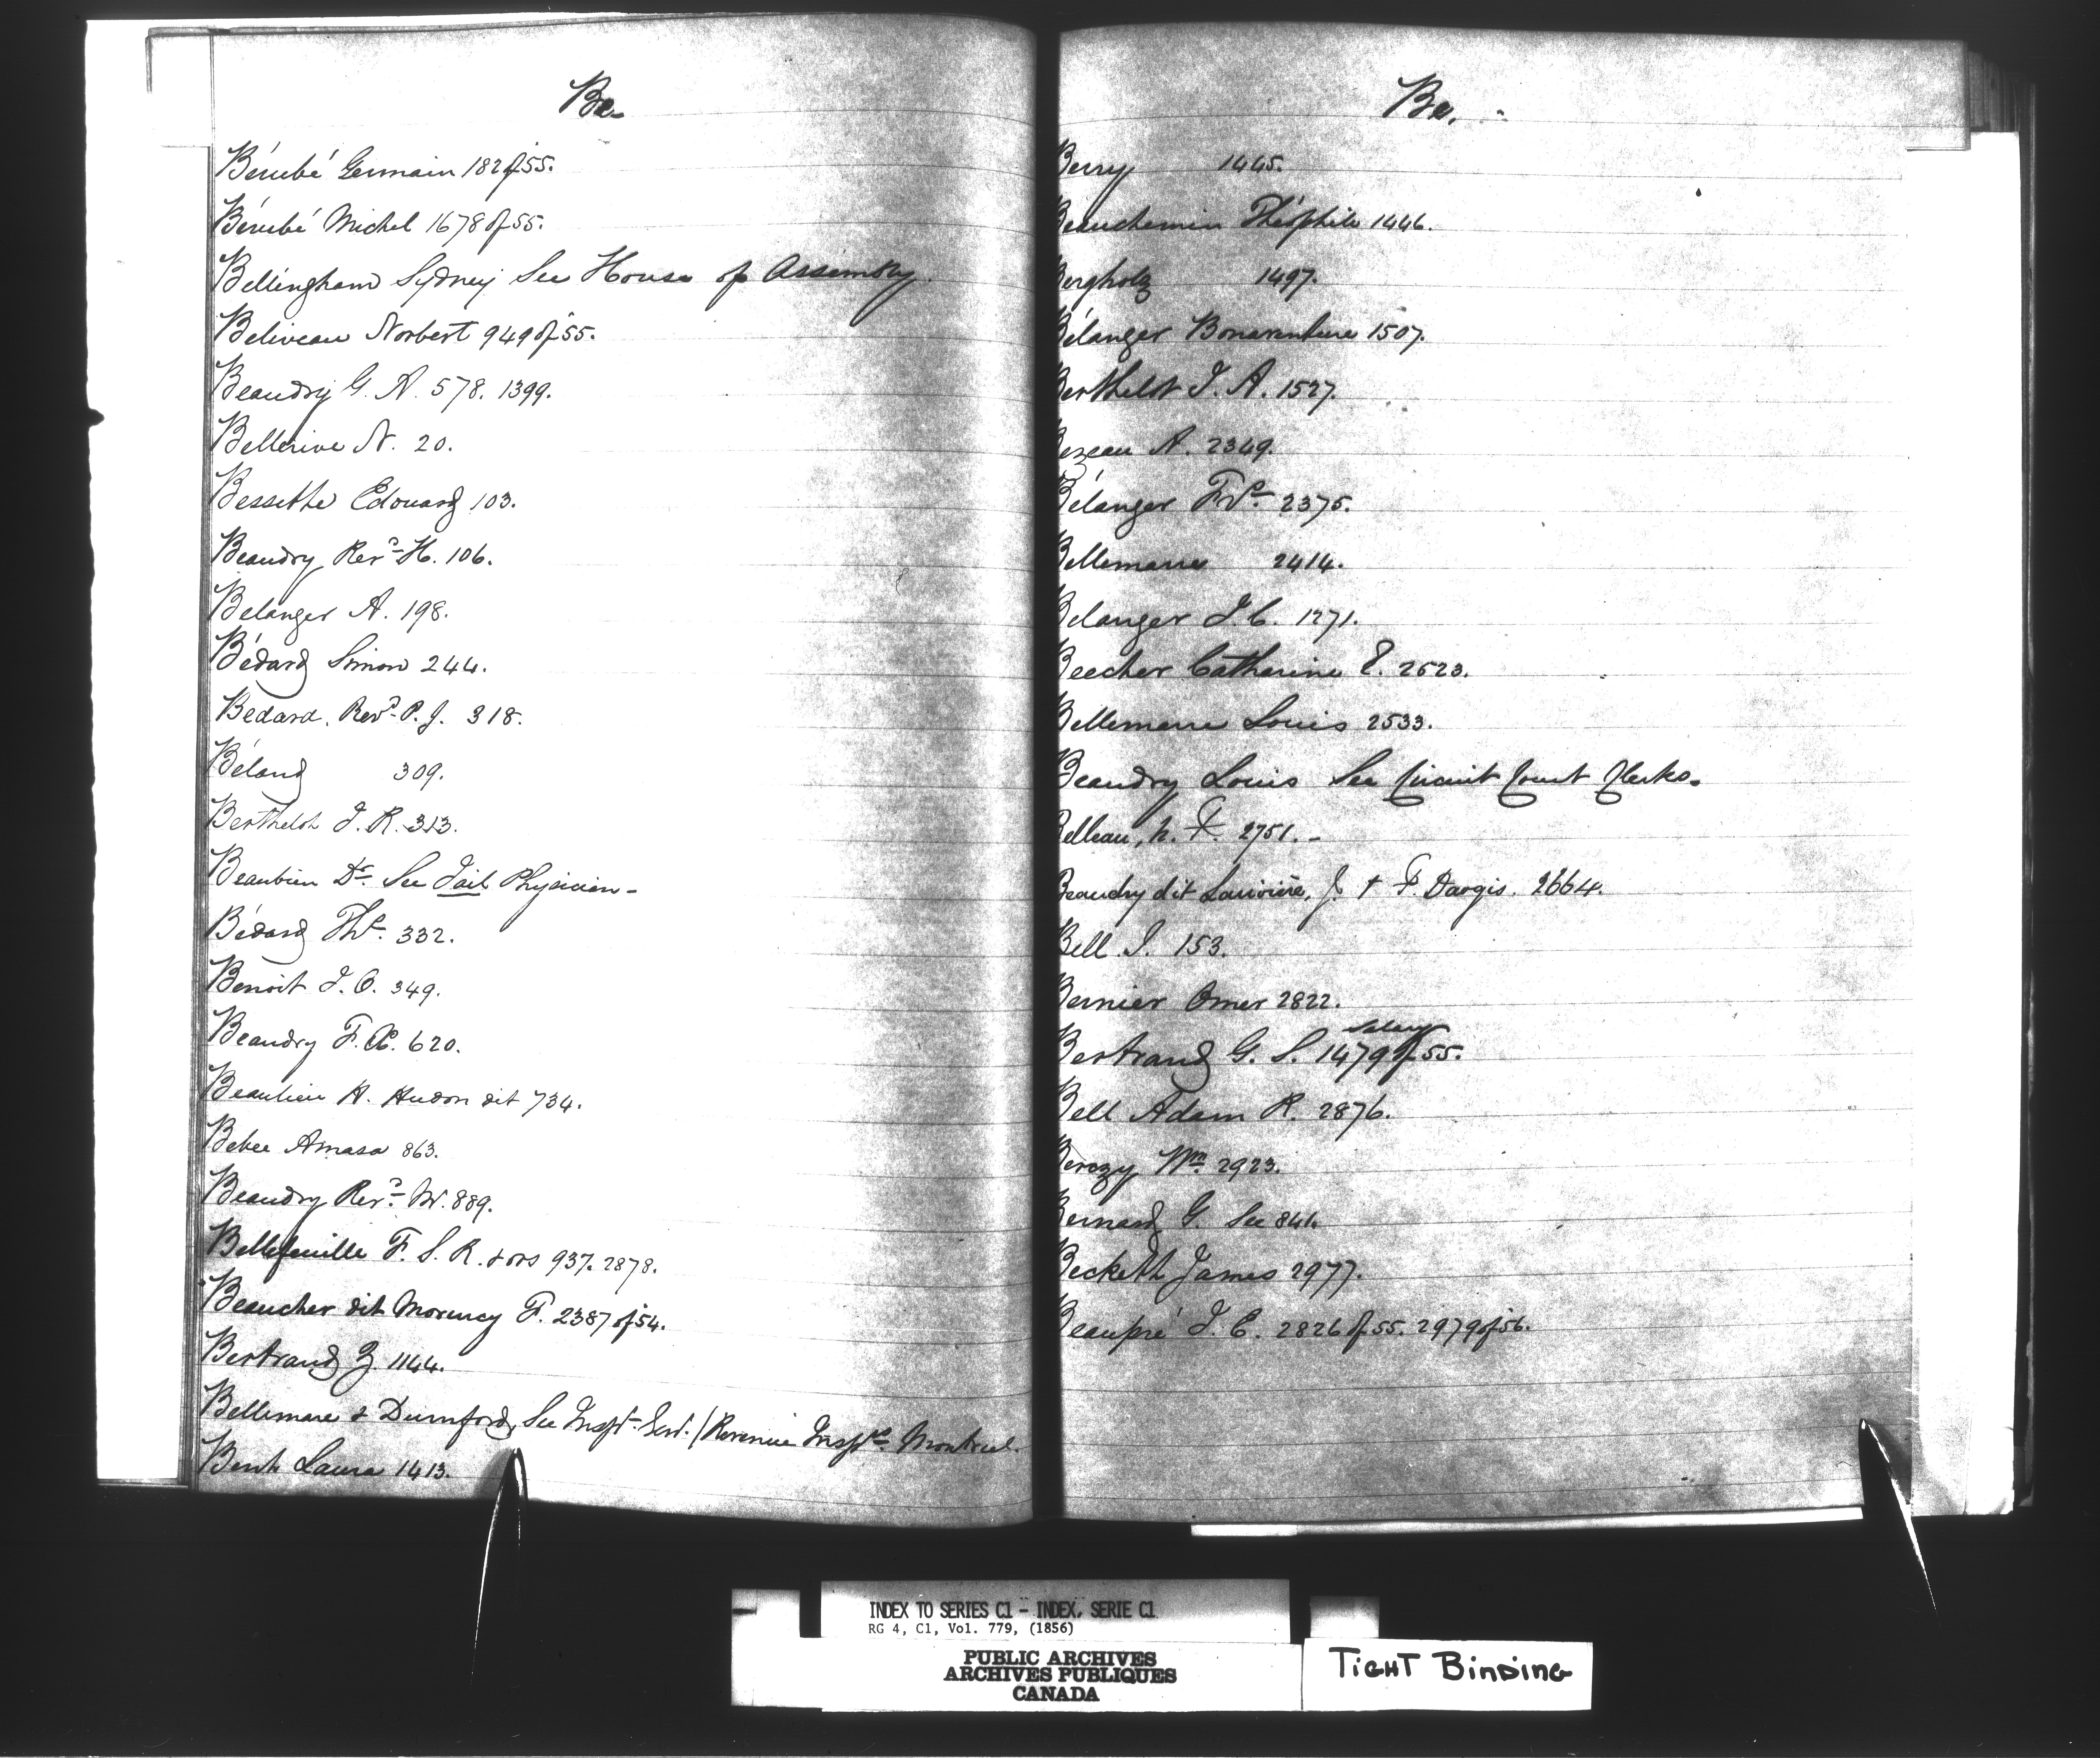 Be.
Bérubé Germain 182 of 55.
Bérubé Michel 1678 of 55.
Bellingham Sydney See House of Assembly.
Beliveau Norbert 949 of 55.
Beaudry G. A. 578. 1399.
Bellerive N. 20.
Bessette Edouard 103.
Beaudry Revd H. 106.
Belanger A. 198.
Bédard Simon 244.
Bedard. Revd P. J. 318.
Béland 309.
Berthelot J. R. 313.
Beaubien Dr See Jail Physician -
Bédard Ths 332.
Benoit J. O. 349.
Beaudry F. X. 620.
Beaulieu H. Hudon dit 734.
Bebee Amasa 863.
Beaudry Revd M. 889.
Bellefeuille F. S. R. & ors 937. 2878.
Beaucher dit Morency F. 2387 of 54.
Bertrand Z. 1144.
Bellemare & Durnford, See Inspr Genl. / Revenue Insprs Montreal.
Bent Laura 1413.
Be.
Berry 1445.
Beauchemin Théophile 1446.
Bergholz 1497.
Bélanger Bonaventure 1507.
Berthelot J. A. 1527.
Bezeau A. 2349.
Bélanger Frs 2375.
Bellemarre 2414.
Belanger J. C. 1271.
Beecher Catherine E. 2523.
Bellemarre Louis 2533.
Beaudry Louis See Circuit Court Clerks.
Belleau, N. F. 2751. -
Beaudry dit J. & F. Dargis. 2664.
Bell J. 153.
Bernier Omer 2822.
Salary
Bertrand G. S. 1479 of 55.
Bell Adam R. 2876.
Berczy Wm 2923.
Bernard G. See 841.
Beckett James 2977.
Beaupré J. E. 2826 of 55. 2979 of 56.
INDEX TO SERIES C1 - INDEX, SERIE C1
RG 4, C1, Vol. 779, (1856)
PUBLIC ARCHIVES
ARCHIVES PUBLIQUES
CANADA
TIGHT BINDING